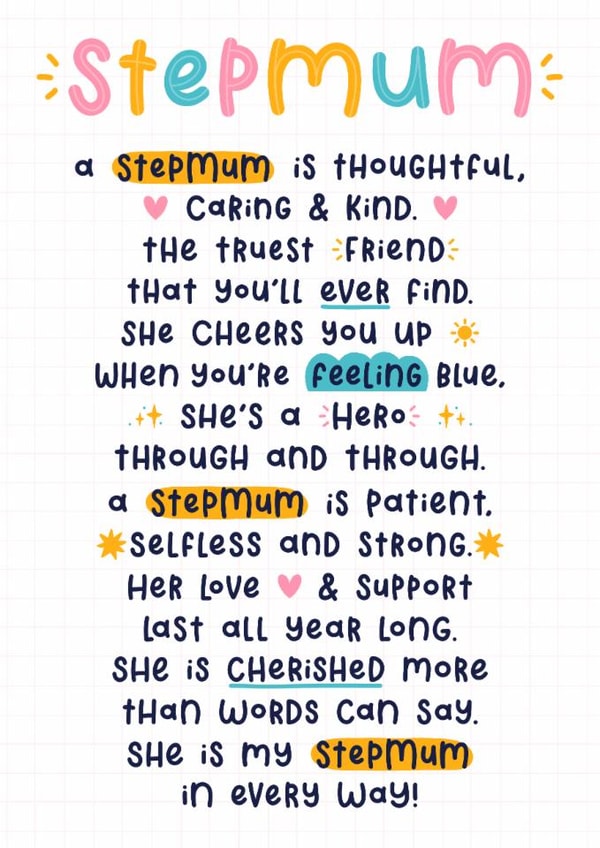 stepmum
a stepmum is thoughtful,
caring & kind.
the truest friend
that you'll ever find.
she cheers you up
when you're feeling blue.
she's a hero
through and through.
a stepmum is patient,
selfless and strong.
her love & support
last all year long.
she is cherished more
than words can say.
she is my stepmum
in every way!